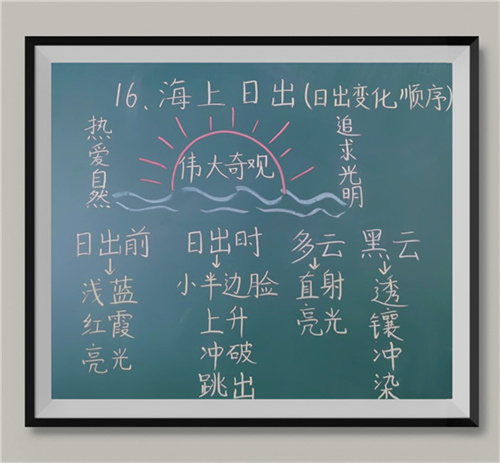 16、海上日出(日出变化顺序)
热爱自然
伟大奇观
追求光明
日出前
↓
浅蓝
红霞
亮光
日出时
↓
小半边脸
上升
冲破
跳出
多云
↓
直射
亮光
黑云
↓
透
镶
冲
染